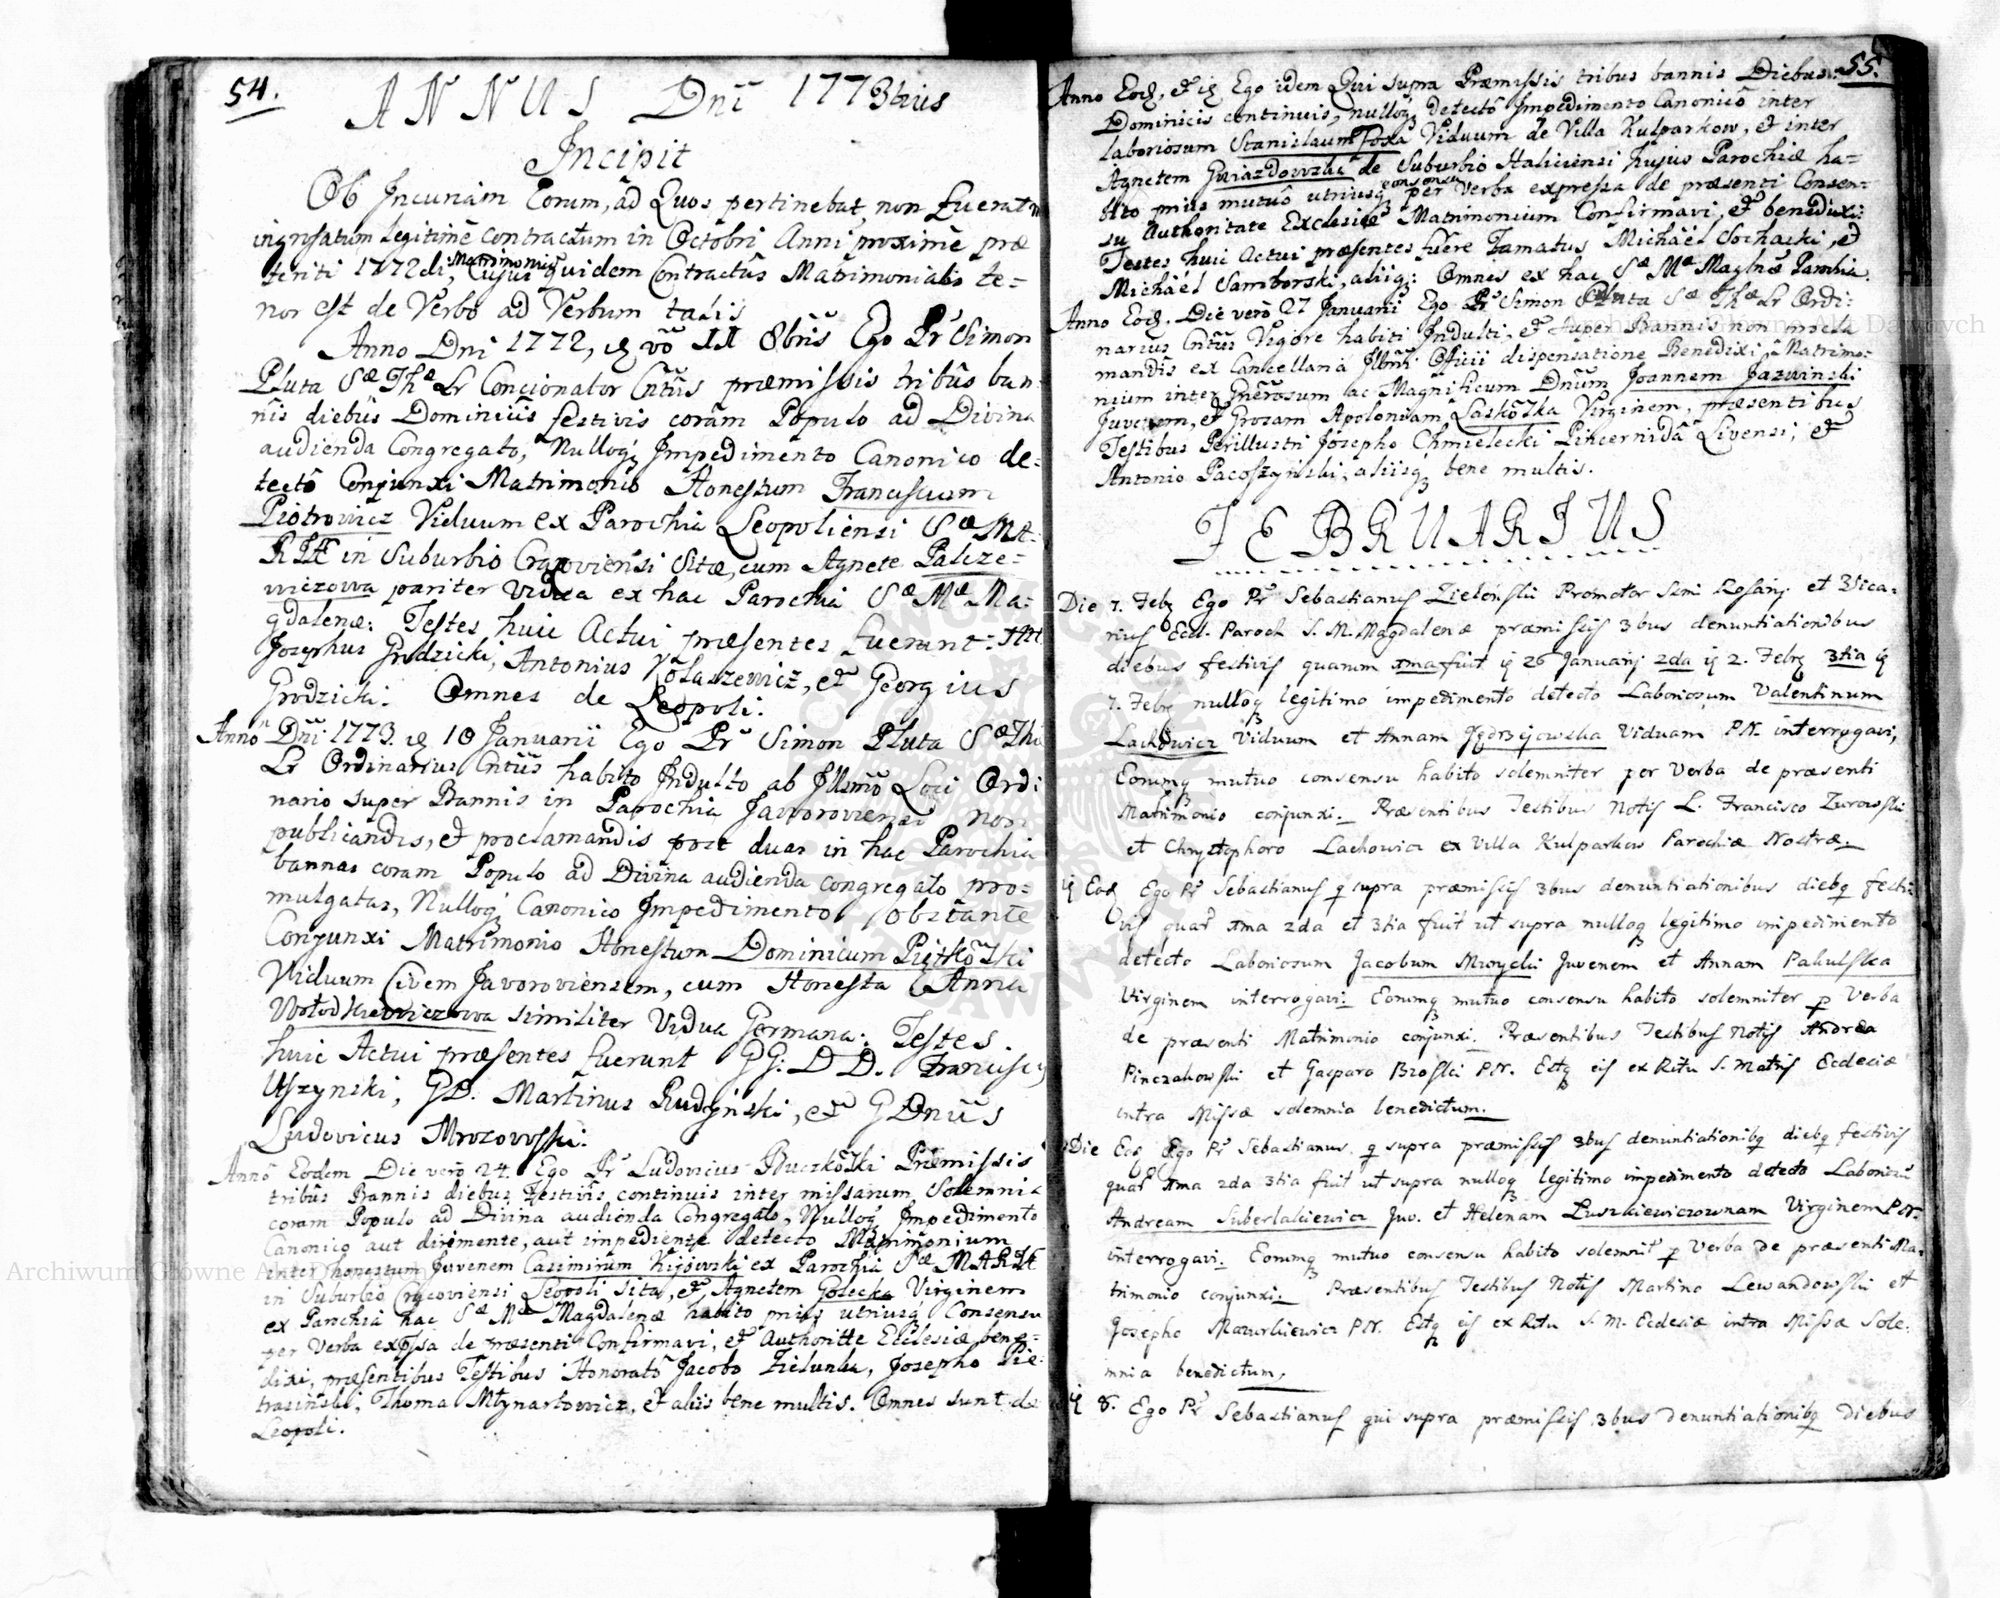 54.
ANNUS Dnĩ 1773tius
Incipit
Ob Incuriam Eorum, ad Quos pertinebat, non fuerat
ingrossatum legitimè contractum in Octobri Anni proximè præ
teriti 1772di, Matrimonium Cujus quidem Contractûs Matrimonialis te=
nor est de Verbo ad Verbum talis
Anno Dni 1772, võ 11 8brĩs Ego Pr Simon
Pluta Sæ Thæ Lr Concionator Cntũs præmissis tribûs ban=
nis diebûs Dominicis festivis coràm Populo ad Divina
audienda Congregato, Nulloq; Impedimento Canonico de=
tectô Conjunxi Matrimonio Honestum Franciscum
Piotrowicz Viduum ex Parochia Leopoliensi Sæ MA=
RIÆ in Suburbio Cracoviensi Sitæ, cum Agnete Palize=
wiczowa pariter Vidua ex hac Parochia Sæ Mæ Ma=
gdalenæ: Testes huic Actui præsentes fuerunt:
Josephus Grodzicki, Antonius Tołaszewicz, et Georgius
Grodzicki. Omnes de Leopoli.
Anno Dnĩ 1773. 10 Januarii Ego Pr Simon Pluta Sæ Thæ
Lr Ordinarius Cntũs habito Indulto ab Illsmõ Loci Ordi
nario super Bannis in Parochia Javoroviensi non
publicandis, et proclamandis post duas in hac Parochia
bannas coram Populo ad Divina audienda congregato pro=
mulgatas, Nulloq; Canonico Impedimento Obstante
Conjunxi Matrimonio Honestum Dominicum Piętkõski
Viduum Civem Javoroviensem, cum Honesta Anna
Wołodkiewiczowa similiter Vidua Germana: Testes
huic Actui præsentes fuerunt GG: DD. Franciscus
Uszynski, GD. Martinus Rudzinski, et GDnũs
Ludovicus Mrozovoski.
Anno Eodem Die verò 24. Ego Pr Ludovicus Buczkõski Præmissis
tribûs Bannis diebus Festivis continuis inter missarum Solemnia
coram Populo ad Divina audienda Congregato, Nulloq; Impedimento
Canonico aut dirimente, aut impediente detecto Matrimonium
inter honestum Juvenem Casimirum Kijowski ex Parochia Sæ MARIÆ
in Suburbio Cracoviensi Leopoli sita, et Agnetem Golecka Virginem
ex Parochia hac Sæ Mæ Magdalenæ habito prius utriusq; Consensu
per Verba expssa de præsenti Confirmavi, et Authoritte Ecclesiæ bene=
dixi, præsentibus Testibus Honoratô Jacobo Zielunka, Josepho Pie=
trasinski, Thoma Młynartowicz, et aliis bene multis. Omnes sunt de
Leopoli.
55.
Anno Eod, et Ego idem Qui supra Præmissis tribus bannis Diebus
Dominicis continuis, nulloq; detectô Impedimento Canonicô inter
laboriosum Stanislaum Foxa Viduum de Villa Kulparkow, et inter
Agnetem Gwiazdowska de Suburbio Haliciensi hujus Parochiæ ha=
bito prius mutuô utriusq; consensu per Verba expressa de præsenti Consen=
su Authoritate Ecclesiæ Matrimonium Confirmavi, et benedixi:
Testes huic Actui præsentes fuere Famatus Michaël Sochacki, et
Michaël Samborski, aliiq; Omnes ex hac Sæ Mæ Magdnæ Parochia.
Anno Eod. Die verò 27 Januarii Ego Pr Simon Pluta Sæ Thæ Lr Ordi=
narius Cntũs Vigore habiti Indulti, et super Bannis non procla
mandis ex Cancellaria Illmi Officii dispensatione Benedixi Matrimo=
nium inter Gnerosum ac Magnificum Dnũm Joannem Jazwinski
Juvenem, et Grosam Apoloniam Laskõska Virginem, præsentibus
Testibus Perillustri Josepho Chmielecki Pincernida Livensi, et
Antonio Pacoszynski, aliisq; bene multis.
FEBRUARIUS
Die 7. Feb Ego Pr Sebastianus Zielenski Promotor Ssmi Rosarij et Vica=
rius Eccl. Paroch S. M. Magdalenæ præmissis 3bus denuntiationibus
diebus festivis quarum 1ma fuit 26 Januarij 2da 2. Feb 3tia
7. Feb nulloq legitimo impedimento detecto Laboriosum Valentinum
Lachowicz Viduum et Annam Jędrzejowska Viduam PN. interrogavi,
Eorumq mutuo consensu habito solemniter per Verba de præsenti
Matrimonio conjunxi. Præsentibus Testibus Notis L. Francisco Zurowski
et Chrystophoro Lachowicz ex Villa Kulparkow Parochiæ Nostræ.
Eod Ego Pr Sebastianus q supra præmissis 3bus denuntiationibus diebq festi
vis quar 1ma 2da et 3tia fuit ut supra nulloq legitimo impedimento
detecto Laboriosum Jacobum Mroycki Juvenem et Annam Pakulska
Virginem interrogavi. Eorumq mutuo consensu habito solemniter p Verba
de præsenti Matrimonio conjunxi. Præsentibus Testibus Notis Andrea
Pinczakowski et Gasparo Broski PN. Estq eis ex Ritu S. Matris Ecclesiæ
intra Missæ solemnia benedictum.
Die Eod Ego Pr Sebastianus q supra præmissis 3bus denuntiationibq diebq festivis
quar 1ma 2da 3tia fuit ut supra nulloq legitimo impedimento detecto Laboriosũ
Andream Suberlakiewicz Juv. et Helenam Luszkiewiczownam Virginem PN.
interrogavi. Eorumq mutuo consensu habito solemnit p Verba de præsenti Ma=
trimonio conjunxi. Præsentibus Testibus Notis Martino Lewandowski et
Josepho Mazurkiewicz PN. Estq eis ex Ritu S. M. Ecclesiæ intra Missæ Sole=
mnia benedictum.
8. Ego Pr Sebastianus qui supra præmissis 3bus denuntiationibq diebus
Archiwum Główne Akt Dawnych